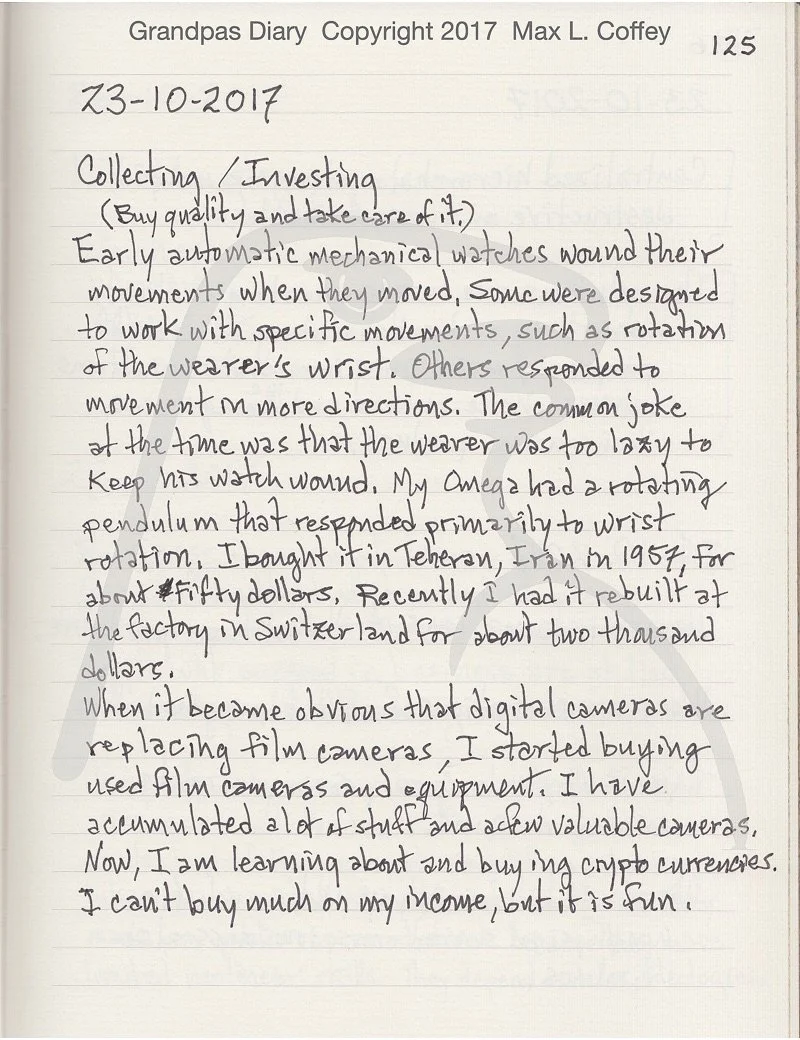 Grandpas Diary Copyright 2017 Max L. Coffey
125
23-10-2017
Collecting / Investing
(Buy quality and take care of it.)
Early automatic mechanical watches wound their
movements when they moved. Some were designed
to work with specific movements, such as rotation
of the wearer's wrist. Others responded to
movement in more directions. The common joke
at the time was that the wearer was too lazy to
keep his watch wound. My Omega had a rotating
pendulum that responded primarily to wrist
rotation. I bought it in Teheran, Iran in 1957, for
about fifty dollars. Recently I had it rebuilt at
the factory in Switzerland for about two thousand
dollars.
When it became obvious that digital cameras are
replacing film cameras, I started buying
used film cameras and equipment. I have
accumulated a lot of stuff and a few valuable cameras.
Now, I am learning about and buying crypto currencies.
I can't buy much on my income, but it is fun.